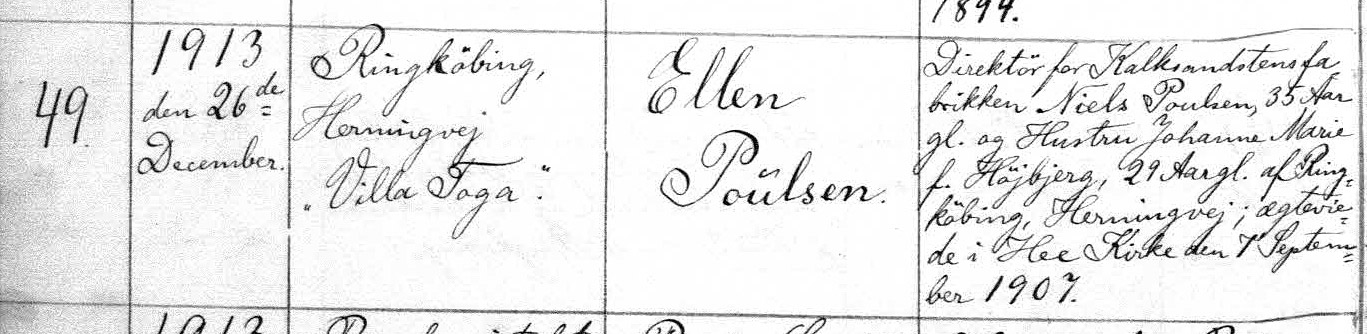 1894.
49.
1913
den 26de
December.
Ringköbing,
Herningvej
"Villa Toga".
Ellen
Poulsen.
Direktör for Kalksandstensfa-
brikken Niels Poulsen, 35 Aar
gl. og Hustru Johanne Marie
f. Höjbjerg, 29 Aar gl. af Ring-
köbing, Herningvej; ægtevie-
de i Hee Kirke den 7' Septem-
ber 1907.
1913